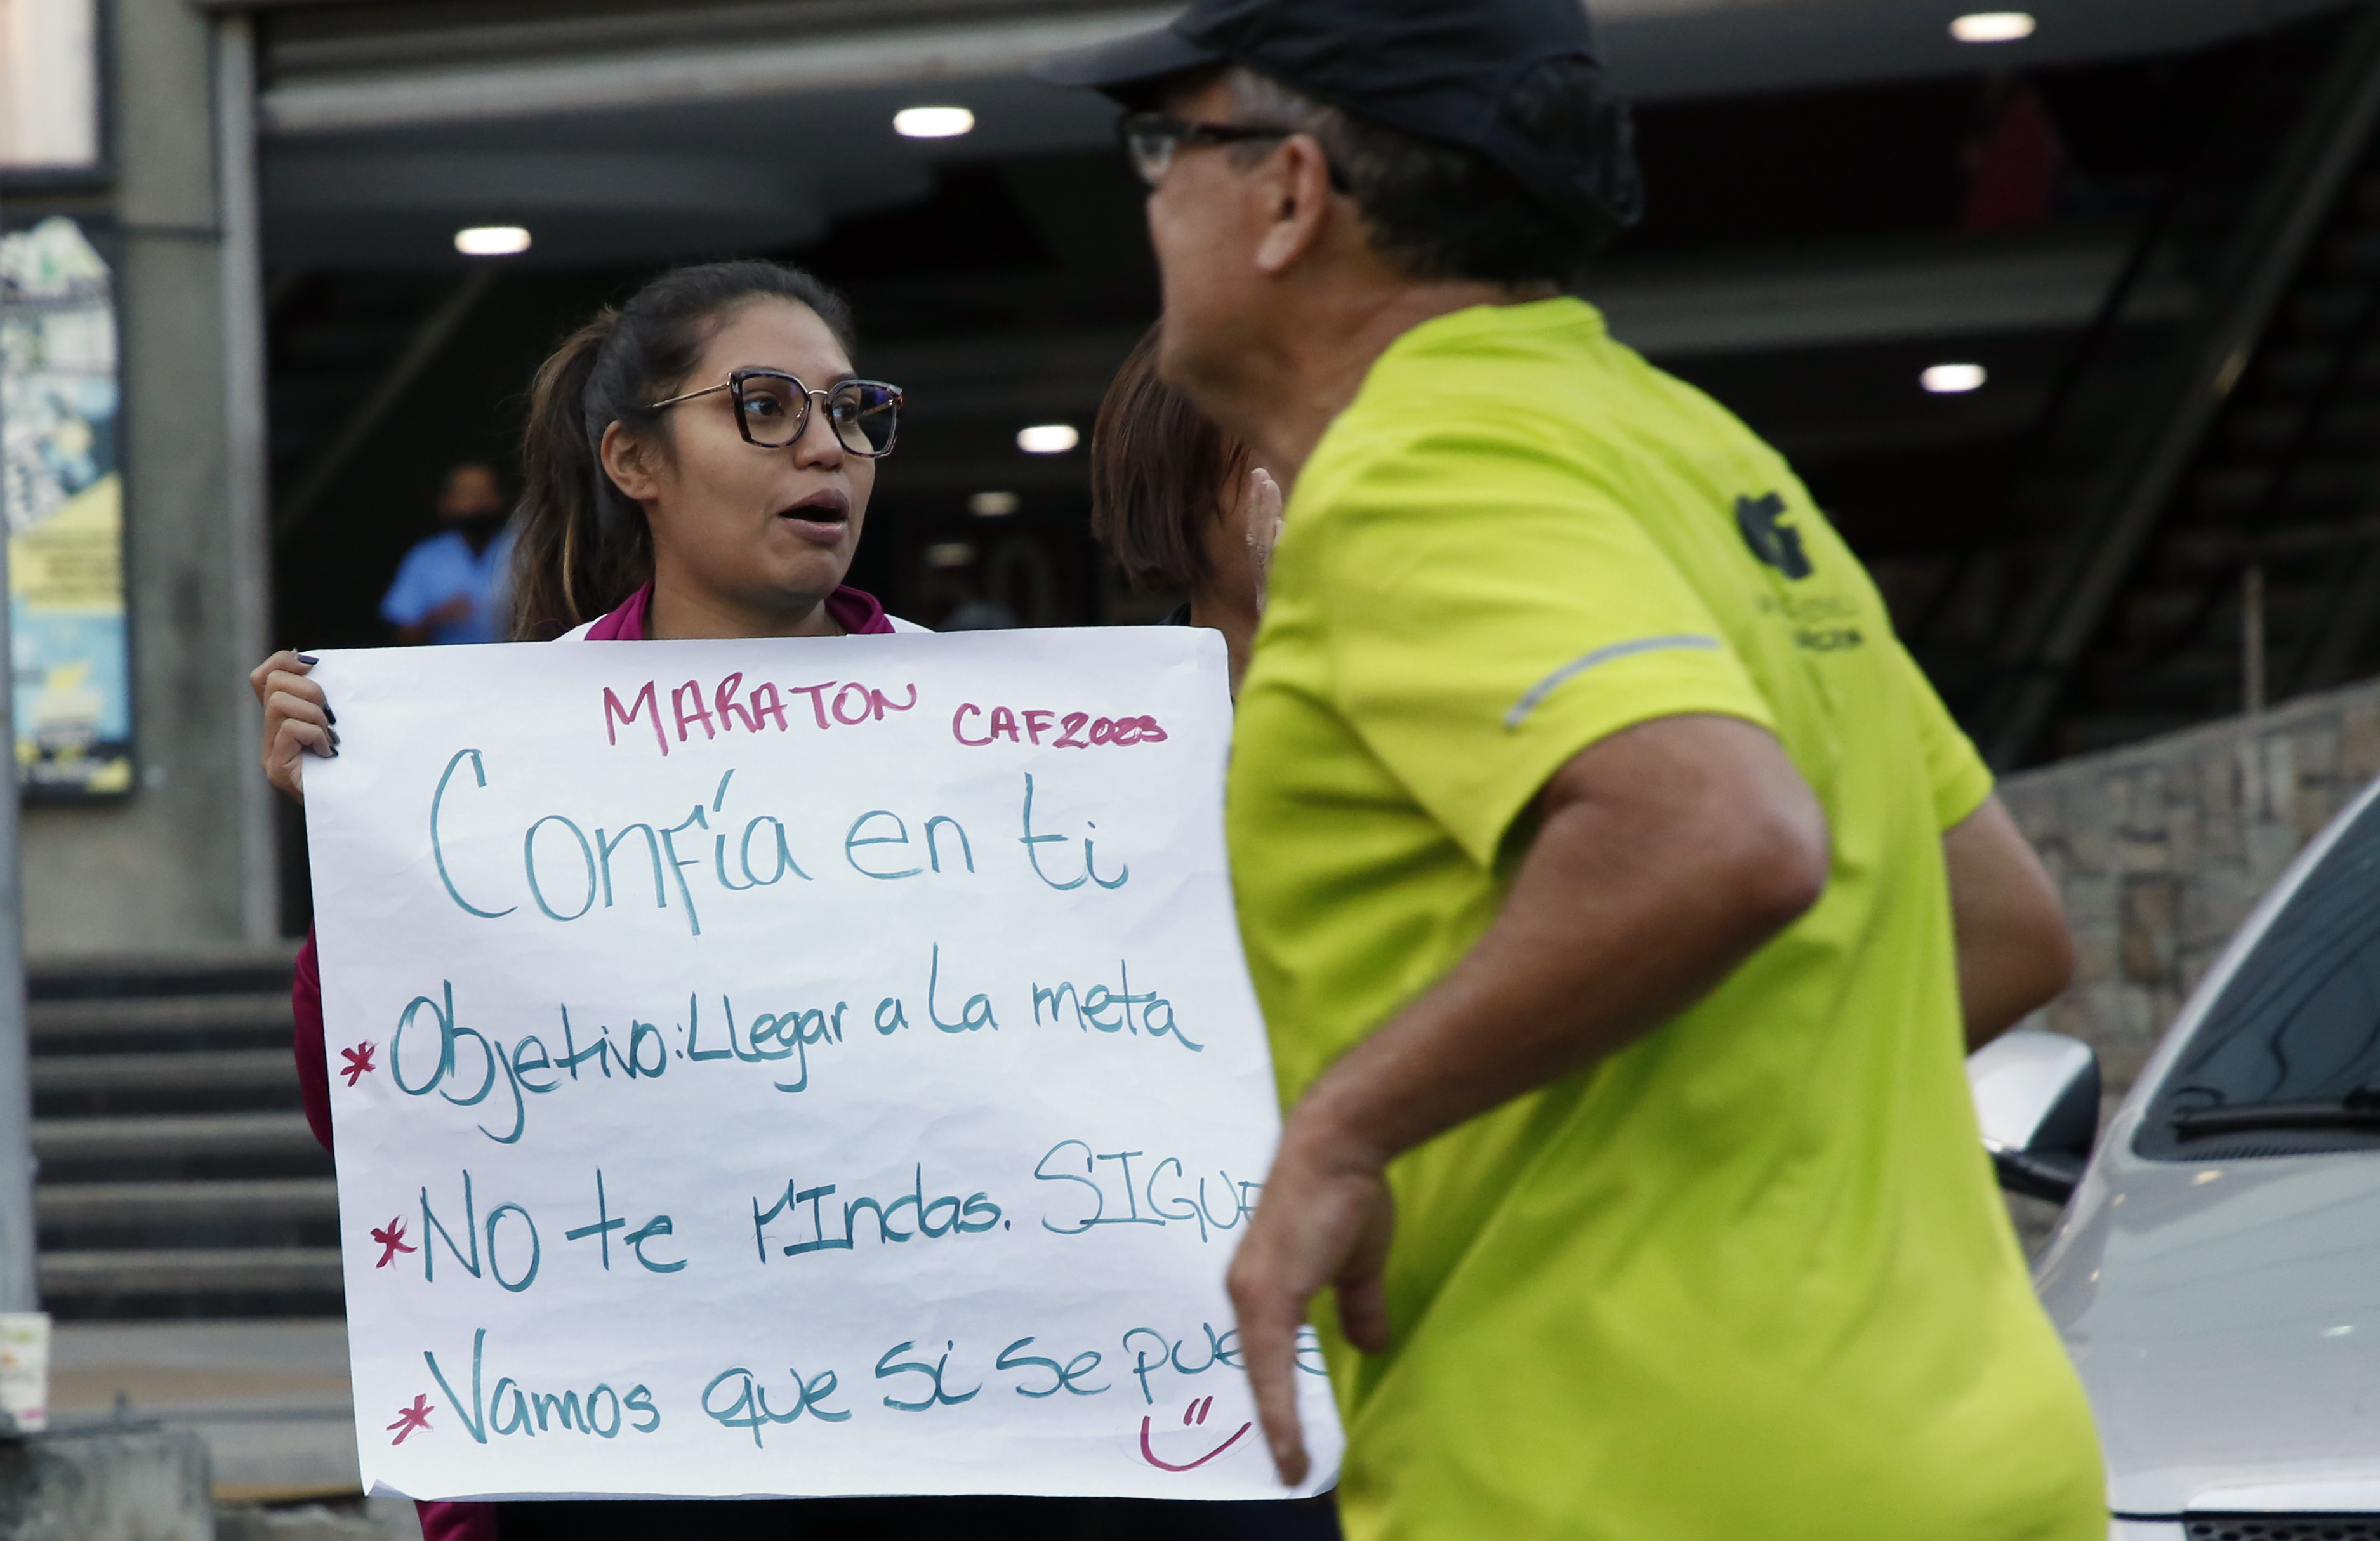 MARATON CAF2023
Confía en ti
* Objetivo: Llegar a la meta
* No te rIndas. SIGUE
* Vamos que si se puede